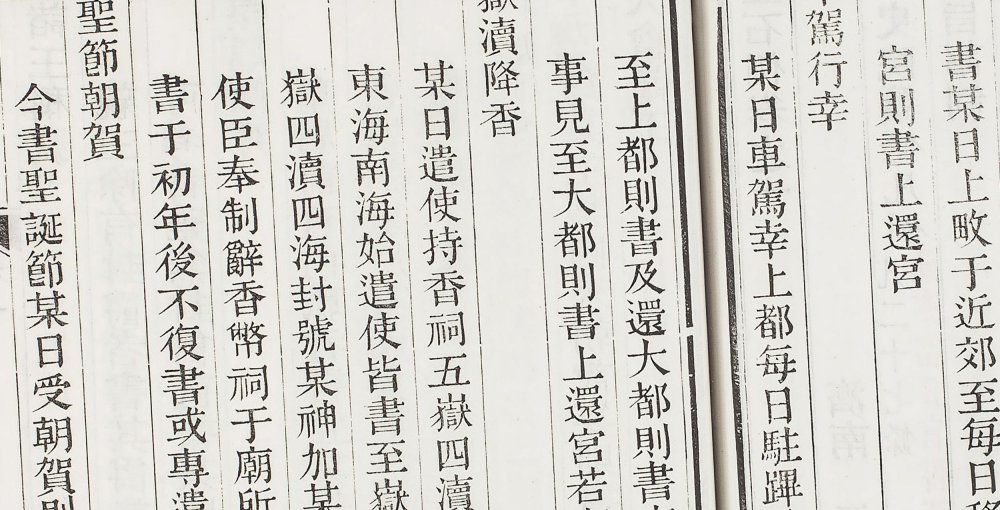 書某日上畋于近郊至每日移
宮則書上還宮
駕行幸
某日車駕幸上都每日駐蹕
至上都則書及還大都則書
事見至大都則書上還宮若
嶽瀆降香
某日遣使持香祠五嶽四瀆
東海南海始遣使皆書至嶽
嶽四瀆四海封號某神加某
使臣奉制辭香幣祠于廟所
書于初年後不復書或專遣
聖節朝賀
今書聖誕節某日受朝賀則